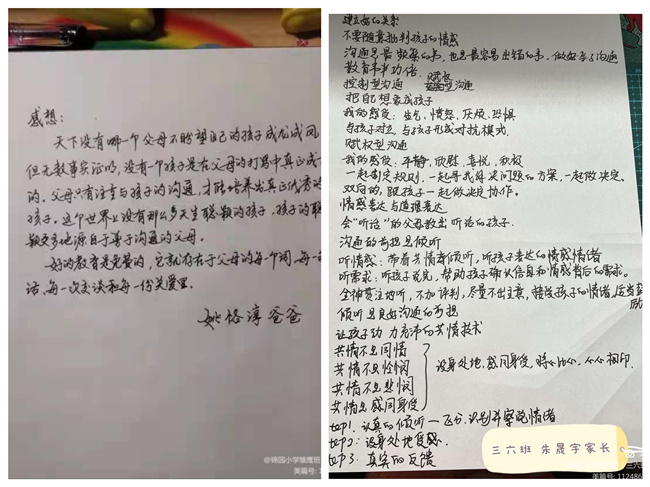 感想：
天下没有哪一个父母不盼望自己的孩子成龙成凤
但无数事实证明，没有一个孩子是在父母的打骂中真正成
的。父母只有注重与孩子的沟通，才能培养出真正优秀的
孩子。这个世界上没有那么多天生聪颖的孩子，孩子的聪
颖更多地源自于善于沟通的父母。
好的教育是免费的，它就存在于父母的每个词、每一
话、每一次交谈和每一份关爱里。
姚悠淳爸爸
@锦园小学雏鹰班
美篇号: 1
建立好的关系
不要随意批判孩子的情感
沟通是最频繁的事，也是最容易出错的事，做好亲子沟通
教育事半功倍。
赋权
控制型沟通 型沟通
把自己想象成孩子
我的感受：生气、愤怒、厌烦、恐惧
与孩子对立，与孩子形成对抗模式.
赋权型沟通
我的感受：平静、欣慰、喜悦、积极
一起制定规则，一起寻找解决问题的方案，一起做决定。
双向的，跟孩子一起做决定协作。
情感表达与道理表达
会“听话”的父母教出听话的孩子.
沟通的前提是倾听
听情感：带着共情者倾听，听孩子表达的情感情绪
听需求：听孩子说完，帮助孩子确认信息和情感背后的需求。
全神贯注地听，不加评判，尽量不出主意，接纳孩子的情绪，适当鼓
励
倾听是良好沟通的前提
让孩子动力充沛的共情技术
共情不是同情
共情不是怜悯
共情不是悲悯
共情是感同身受
设身处地、感同身受，将心比心，心心相印.
step1. 认真的倾听一 识别并察觉情绪
step2: 设身处地
step3. 真实的反馈
三六班 朱晟宇家长
三六
美篇号: 112486